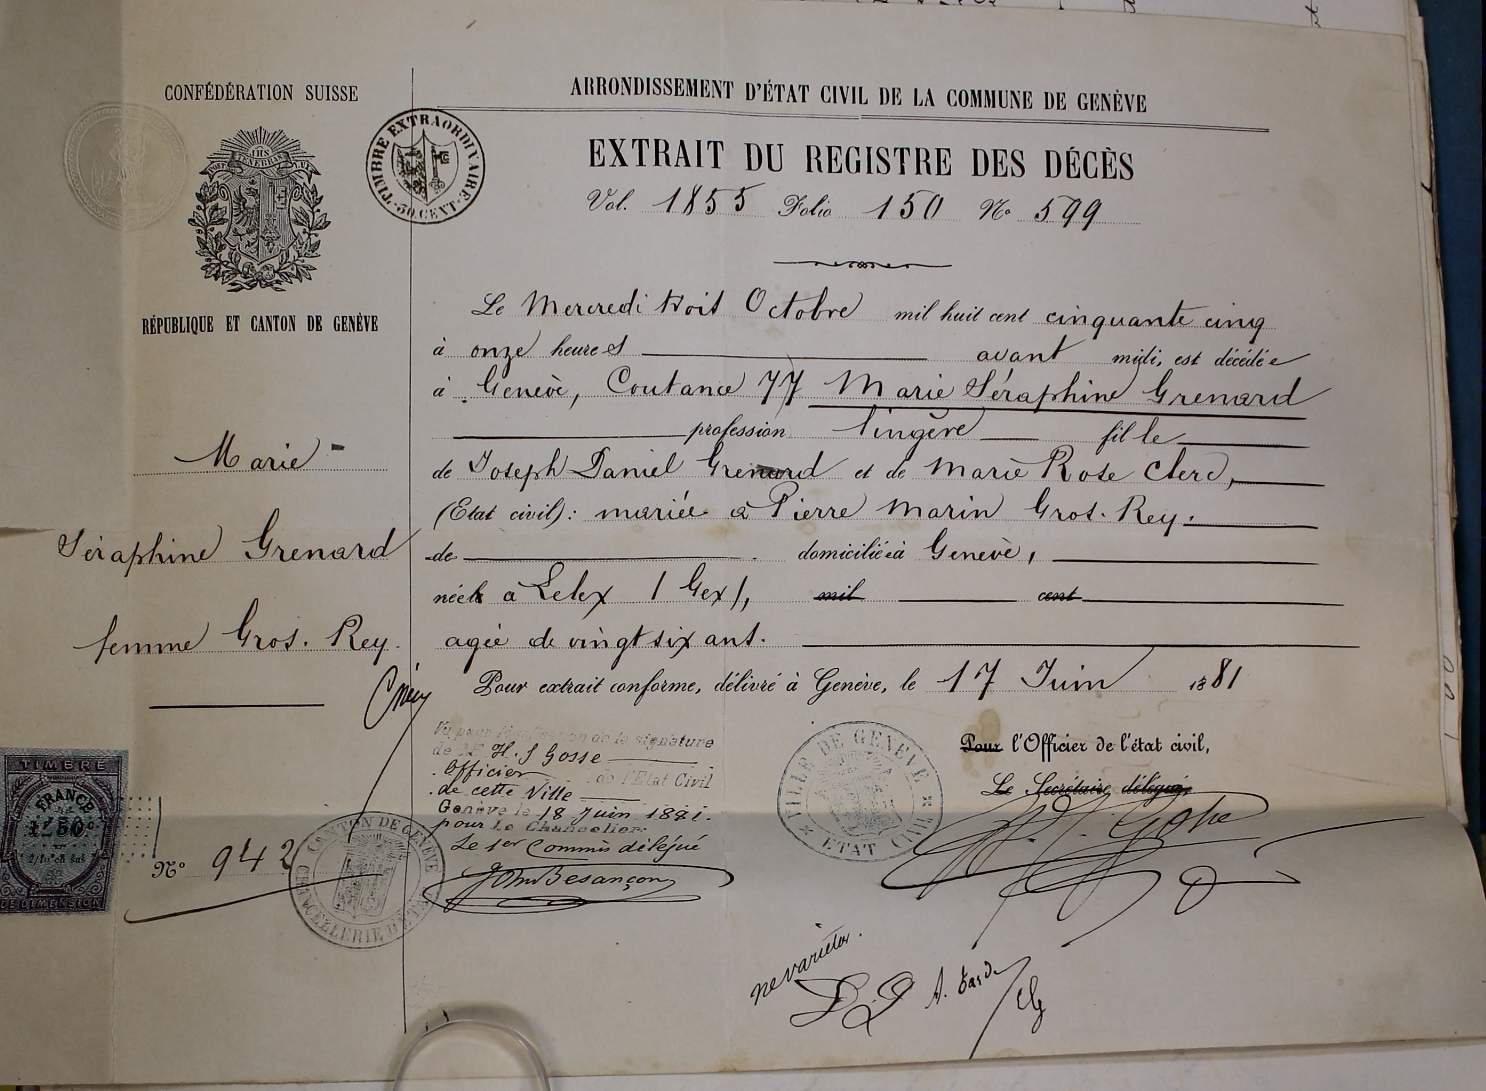 CONFÉDÉRATION SUISSE
RÉPUBLIQUE ET CANTON DE GENÈVE
TIMBRE EXTRAORDINAIRE
50 CENT.
ARRONDISSEMENT D'ÉTAT CIVIL DE LA COMMUNE DE GENÈVE
EXTRAIT DU REGISTRE DES DÉCÈS
Vol. 1855 Folio 150 No 599
Le Mercredi trois Octobre mil huit cent cinquante cinq
à onze heures avant midi, est décédée
à Genève, Coutance 77 Marie Séraphine Grenard
profession lingère fille
de Joseph Daniel Grenard et de Marie Rose Clerc,
(Etat civil): mariée à Pierre Marin Gros-Rey.
de domiciliée à Genève,
née à Lelex (Gex), mil cent
agée de vingt six ans.
Pour extrait conforme, délivré à Genève, le 17 Juin 1881
Marie
Séraphine Grenard
femme Gros-Rey.
Vu pour légalisation de la signature
de Mr H. J Gosse
Officier de l'Etat Civil
de cette Ville
Genève le 18 Juin 1881.
pour Le Chancelier:
Le 1er Commis délégué
John Besançon
Pour l'Officier de l'état civil,
Le Secrétaire délégué,
VILLE DE GENÈVE
ETAT CIVIL
TIMBRE
FRANCE
1F 50c
2/10es en sus
DE DIMENSION
No 942
CANTON DE GENÈVE
CHANCELLERIE D'ETAT
ne varietur.